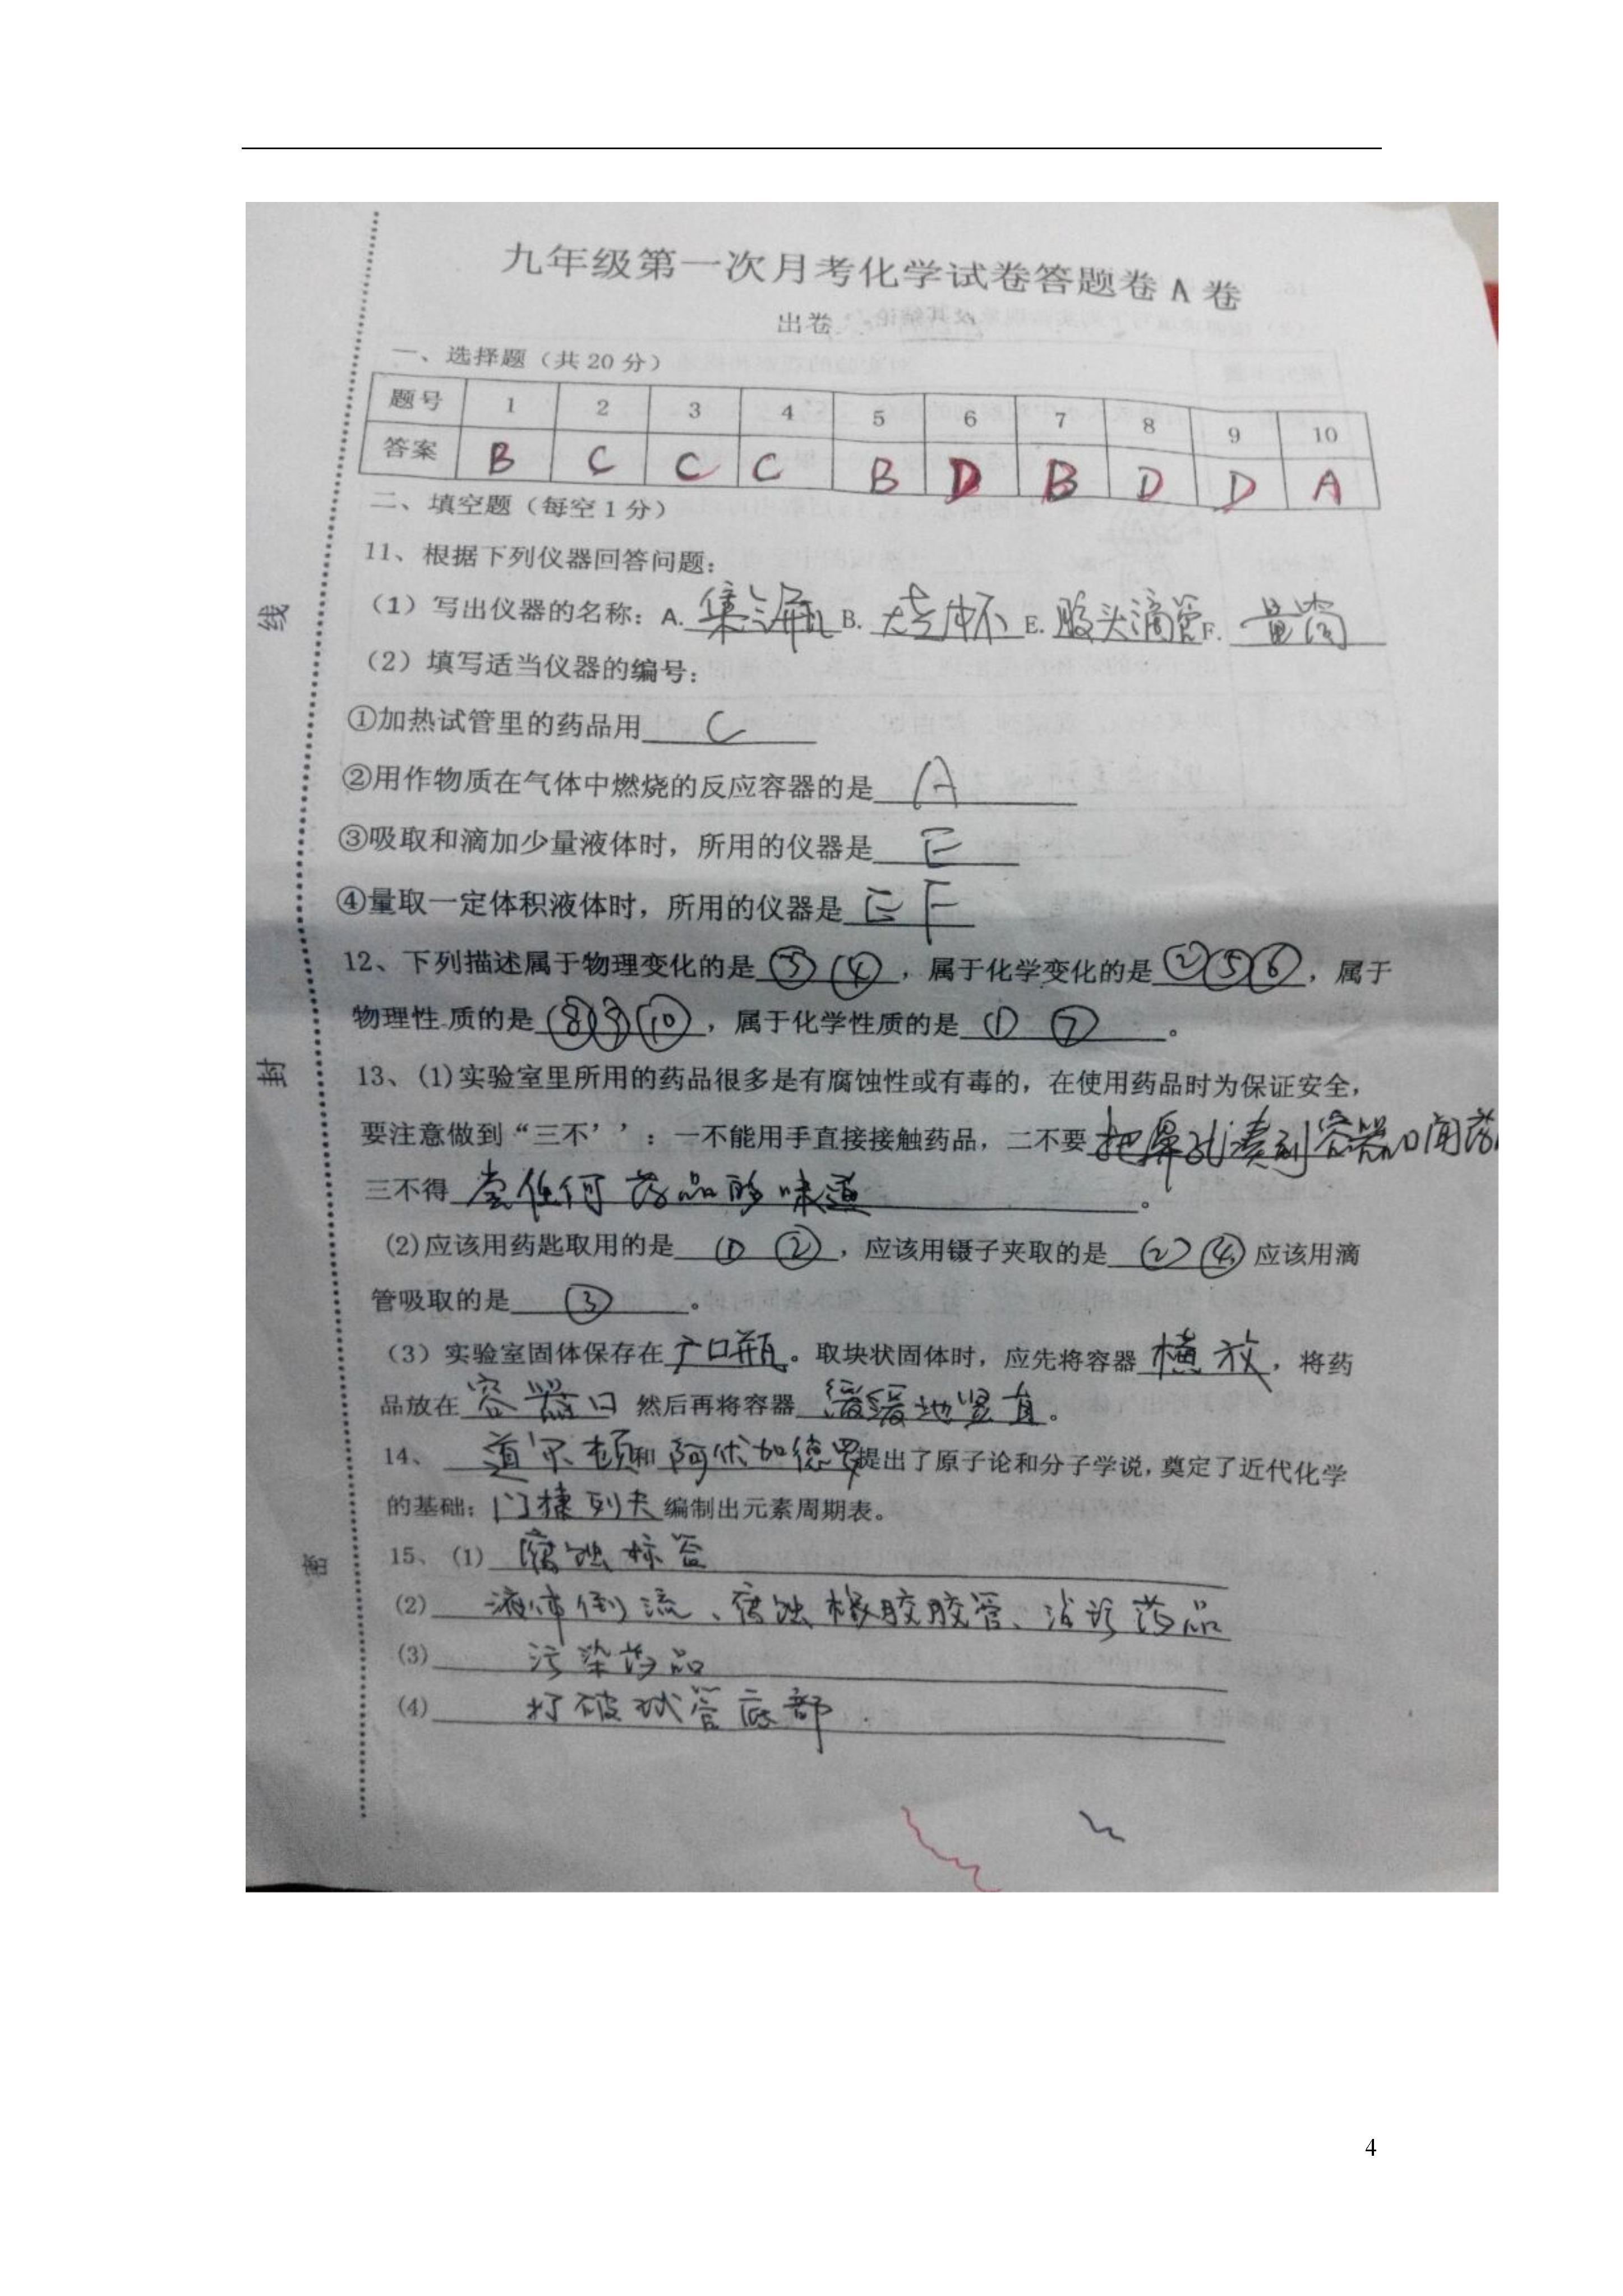 九年级第一次月考化学试卷答题卷A卷
出卷
一、选择题（共20分）
题号 1 2 3 4 5 6 7 8 9 10
答案 B C C C B D B D D A
二、填空题（每空1分）
11、根据下列仪器回答问题：
（1）写出仪器的名称：A.集气瓶B.大烧杯E.胶头滴管F.量筒
（2）填写适当仪器的编号：
①加热试管里的药品用 C
②用作物质在气体中燃烧的反应容器的是 A
③吸取和滴加少量液体时，所用的仪器是 E
④量取一定体积液体时，所用的仪器是 E F
12、下列描述属于物理变化的是 ③ ④，属于化学变化的是②⑤⑥，属于
物理性 质的是⑧⑨⑩，属于化学性质的是 ① ⑦。
13、(1)实验室里所用的药品很多是有腐蚀性或有毒的，在使用药品时为保证安全，
要注意做到“三不’’：一不能用手直接接触药品，二不要把鼻孔凑到容器口闻药
三不得 尝任何药品的味道。
(2)应该用药匙取用的是 ① ②，应该用镊子夹取的是 ② ④ 应该用滴
管吸取的是 ③。
（3）实验室固体保存在广口瓶。取块状固体时，应先将容器 横放，将药
品放在容器口 然后再将容器 缓缓地竖直。
14、 道尔顿和阿伏加德罗提出了原子论和分子学说，奠定了近代化学
的基础；门捷列夫编制出元素周期表。
15、（1） 腐蚀标签
(2) 液体倒流、腐蚀橡胶胶管、沾污药品
(3) 污染药品
(4) 打破试管底部
线
封
密
4